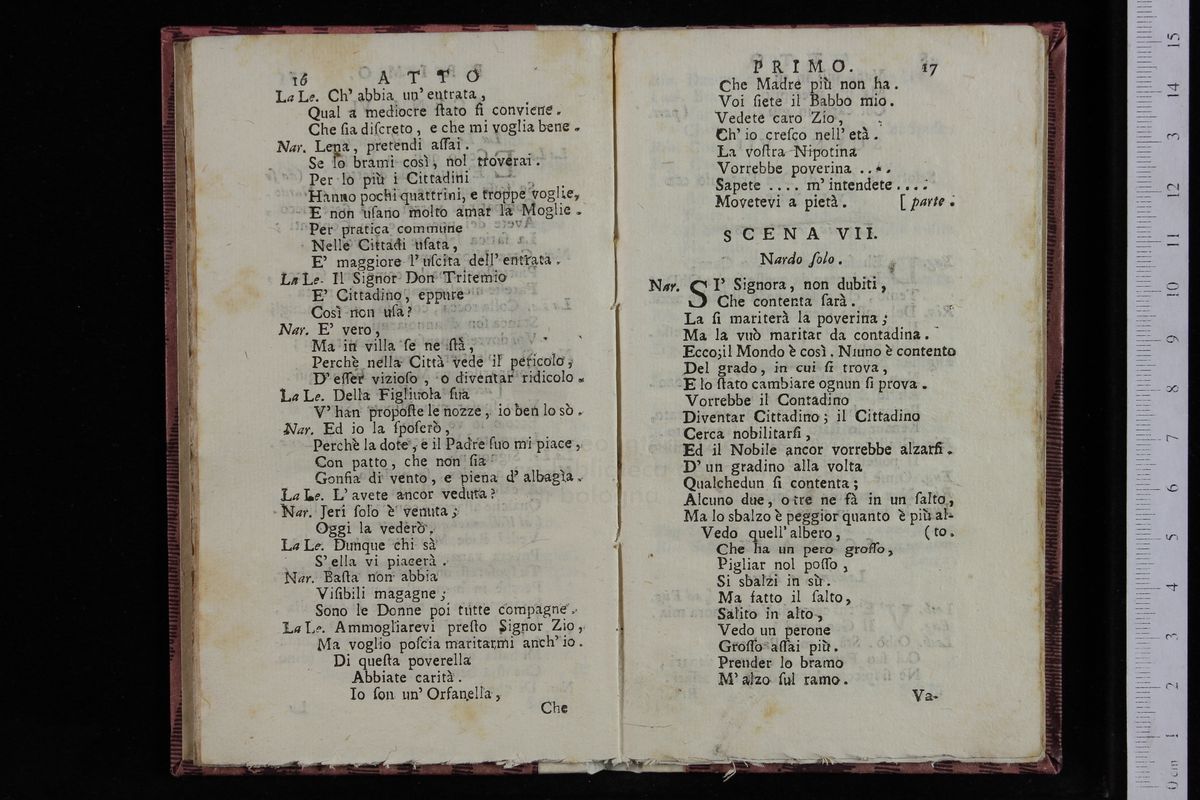 16 ATTO
La Le. Ch' abbia un' entrata,
Qual a mediocre ſtato ſi conviene.
Che ſia diſcreto, e che mi voglia bene.
Nar. Lena, pretendi aſſai.
Se lo brami così, nol troverai.
Per lo più i Cittadini
Hanno pochi quattrini, e troppe voglie,
E non uſano molto amar la Moglie.
Per pratica commune
Nelle Cittadi uſata,
E' maggiore l' uſcita dell' entrata.
La Le. Il Signor Don Tritemio
E' Cittadino, eppure
Così non uſa?
Nar. E' vero,
Ma in villa ſe ne ſtà,
Perchè nella Città vede il pericolo,
D' eſſer vizioſo, o diventar ridicolo.
La Le. Della Figliuola ſua
V' han propoſte le nozze, io ben lo sò.
Nar. Ed io la ſpoſerò,
Perchè la dote, e il Padre ſuo mi piace,
Con patto, che non ſia
Gonfia di vento, e piena d' albagìa.
La Le. L' avete ancor veduta?
Nar. Jeri ſolo è venuta;
Oggi la vederò.
La Le. Dunque chi sà
S' ella vi piacerà.
Nar. Baſta non abbia
Viſibili magagne;
Sono le Donne poi tutte compagne.
La Le. Ammogliarevi preſto Signor Zio,
Ma voglio poſcia maritarmi anch' io.
Di queſta poverella
Abbiate carità.
Io ſon un' Orfanella,
Che
PRIMO. 17
Che Madre più non ha.
Voi ſiete il Babbo mio.
Vedete caro Zio,
Ch' io creſco nell' età.
La voſtra Nipotina
Vorrebbe poverina ....
Sapete .... m' intendete ....
Movetevi a pietà. [parte.
SCENA VII.
Nardo ſolo.
Nar. SI' Signora, non dubiti,
Che contenta ſarà.
La ſi mariterà la poverina;
Ma la vuò maritar da contadina.
Ecco; il Mondo è così. Niuno è contento
Del grado, in cui ſi trova,
E lo ſtato cambiare ognun ſi prova.
Vorrebbe il Contadino
Diventar Cittadino; il Cittadino
Cerca nobilitarſi,
Ed il Nobile ancor vorrebbe alzarſi.
D' un gradino alla volta
Qualchedun ſi contenta;
Alcuno due, o tre ne fà in un ſalto,
Ma lo sbalzo è peggior quanto è più al-
Vedo quell' albero, (to.
Che ha un pero groſſo,
Pigliar nol poſſo,
Si sbalzi in sù.
Ma fatto il ſalto,
Salito in alto,
Vedo un perone
Groſſo aſſai più.
Prender lo bramo
M' alzo ſul ramo.
Va-